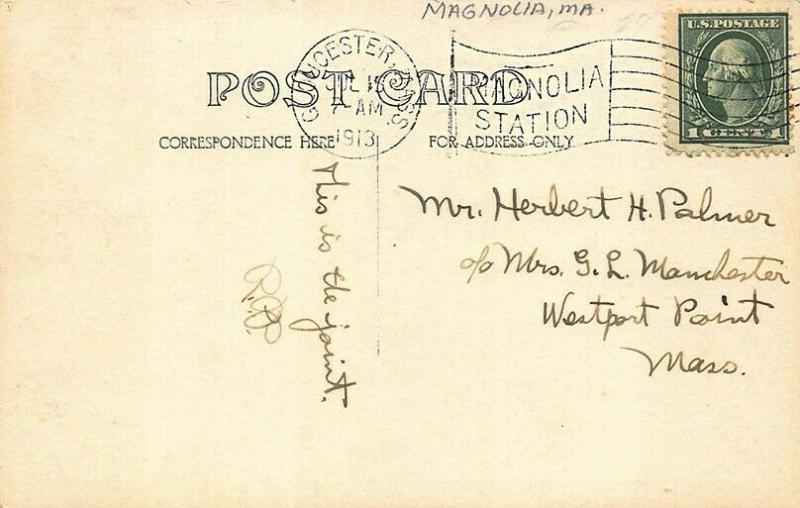 MAGNOLIA, MA.
U.S. POSTAGE
1 CENT 1
GLOUCESTER, MASS
7-AM
1913
MAGNOLIA
STATION
POST CARD
CORRESPONDENCE HERE
FOR ADDRESS ONLY
This is the joint.
Mr. Herbert H. Palmer
c/o Mrs. G. L. Manchester
Westport Point
Mass.